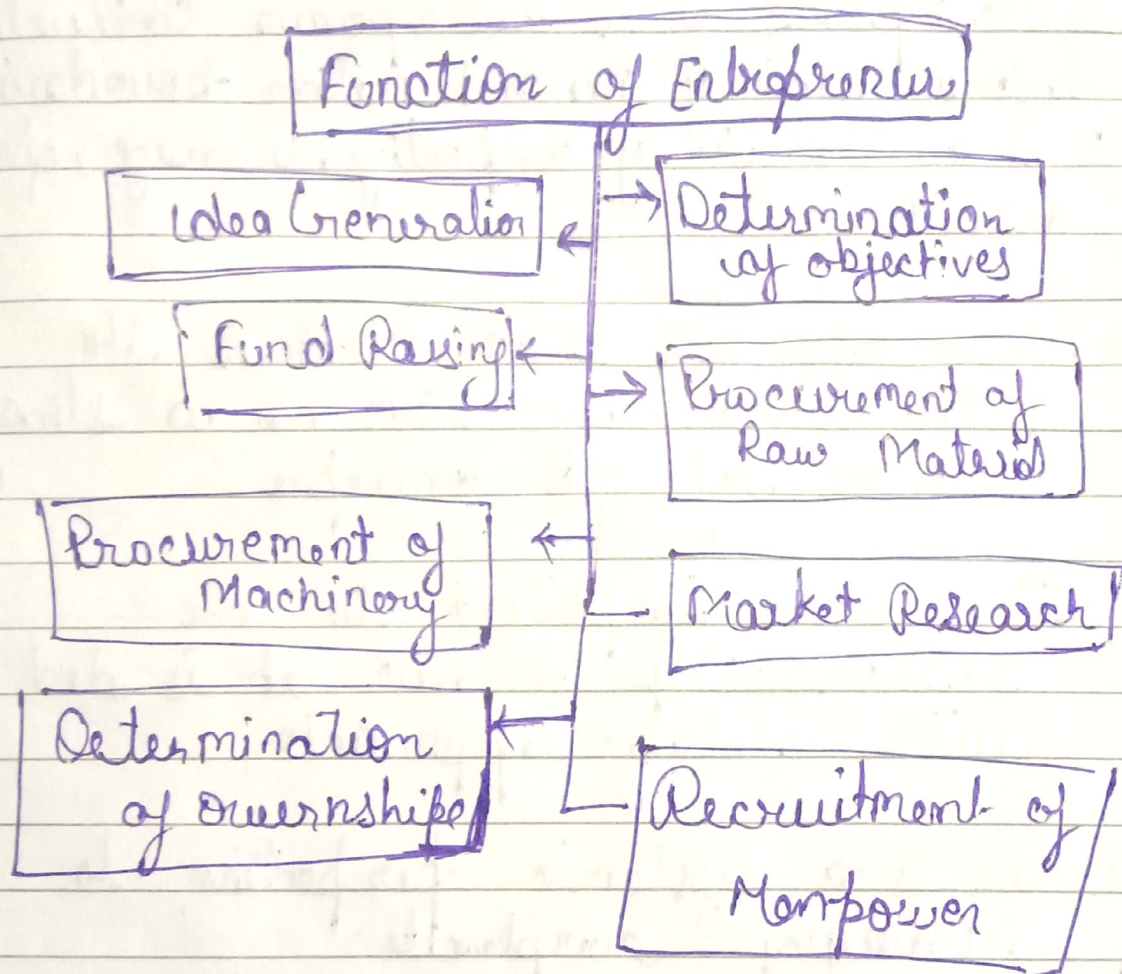 Function of Entrepreneur
Idea Generation
Determination
of objectives
Fund Raising
Procurement of
Raw Material
Procurement of
Machinery
Market Research
Determination
of owernshipe
Recruitment of
Manpower